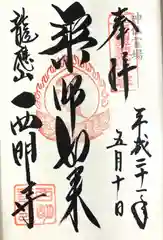 奉拝
平成二十一年
五月十日
薬師如来
龍應山
西明寺